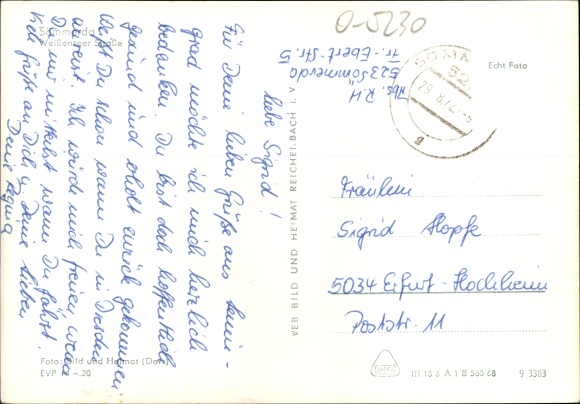 0-5230
Sömmerda
Weißenseer Straße
Echt Foto
Abs. R.H
523 Sömmerda
Fr.-Ebert-Str. 5
SÖMM
52
28.8.72
a
Liebe Sigrid!
Für Deine lieben Grüße aus
grad möchte ich mich herzlich
bedanken. Du bist doch hoffentlich
gesund und erholt zurück gekommen.
Weißt Du schon wann Du in Dresden
Ich würde mich freuen wenn
Du mir mitteilst wann Du fährst.
Viele Grüße an Dich u. Deine Lieben
Deine Regina
VEB BILD UND HEIMAT REICHENBACH I. V.
Fräulein
Sigrid Hopfe
5034 Erfurt-Hochheim
Poststr. 11
Foto: Bild und Heimat (Dorr)
EVP -.20
III 18 6 A 1 B 560 68
9 3383